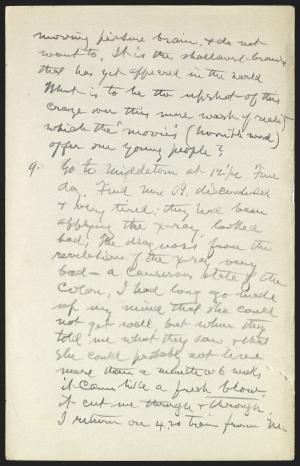 moving picture brain, & do not
want to. It is the shallowest brain
that has yet appeared in the world
What is to be the upshot of this
craze over this mere wash of reality
which the "movies" (horrible word)
offer our young people?
9. Go to Middletown at 12 1/2. Fine
day. Find Mrs B. discouraged
& very tired; they had been
applying the X-ray, looked
bad; The diagnosis from the
revelation of the X-ray very
bad — a cancerous state of the
Colon. I had long ago made
up my mind that she could
not get well, but when they
told me what they saw & that
she could probably not live
more than a month or 6 weeks
it came like a fresh blow;
it cut me through & through.
I return on 4 20 train from